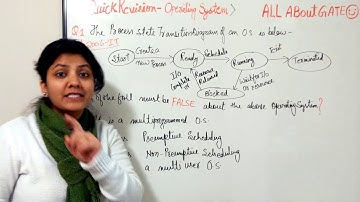 Quick Revision - Operating System
ALL About GATE
Q1 The Process state Transition diagram of an O.S is below -
2006-IT
Start
Create a new Process
Ready
Schedule
Running
Exit
Terminated
I/O Complete or
Resource Released
Wait for I/O or resource
Blocked
of the foll must be FALSE about the above Operating System?
is a multiprogrammed O.S.
Preemptive Scheduling
Non-Preemptive Scheduling
a multi user O.S.